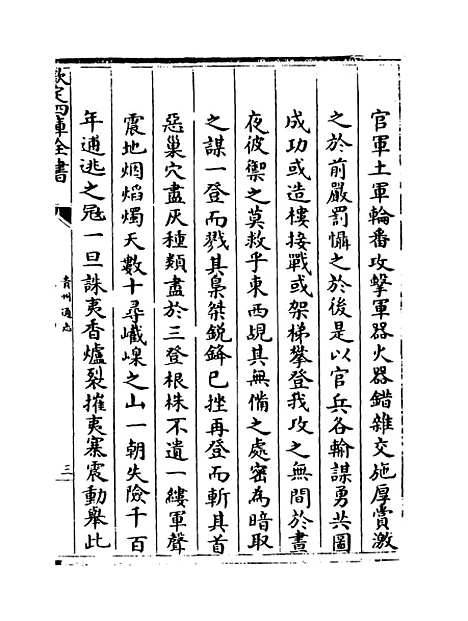 官軍土軍輪番攻擊軍器火器錯雜交施厚賞激
之於前嚴罰懾之於後是以官兵各輸謀勇共圖
成功或造樓接戰或架梯攀登我攻之無間於晝
夜彼禦之莫救乎東西覘其無備之處密為暗取
之謀一登而戮其梟桀銳鋒已挫再登而斬其首
惡巢穴盡灰種類盡於三登根株不遺一縷軍聲
震地烟焰燭天數十尋巀嵲之山一朝失險千百
年逋逃之寇一旦誅夷香爐裂摧夷寨震動舉此
欽定四庫全書
貴州通志
三